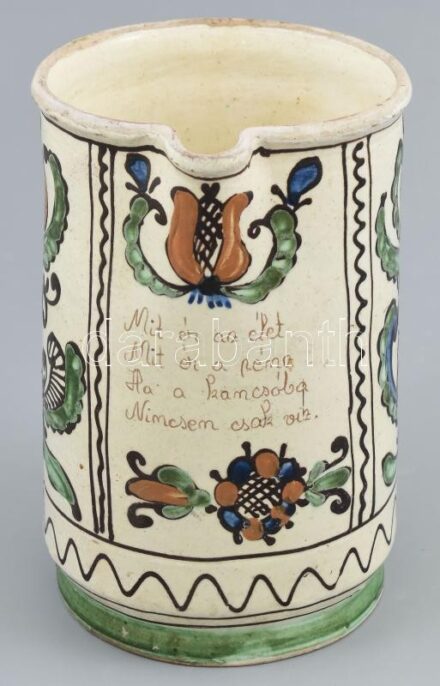 Mit ér az élet
Mit ér a néma
Ha a kancsóba
Nincsen csak víz.
darabanth